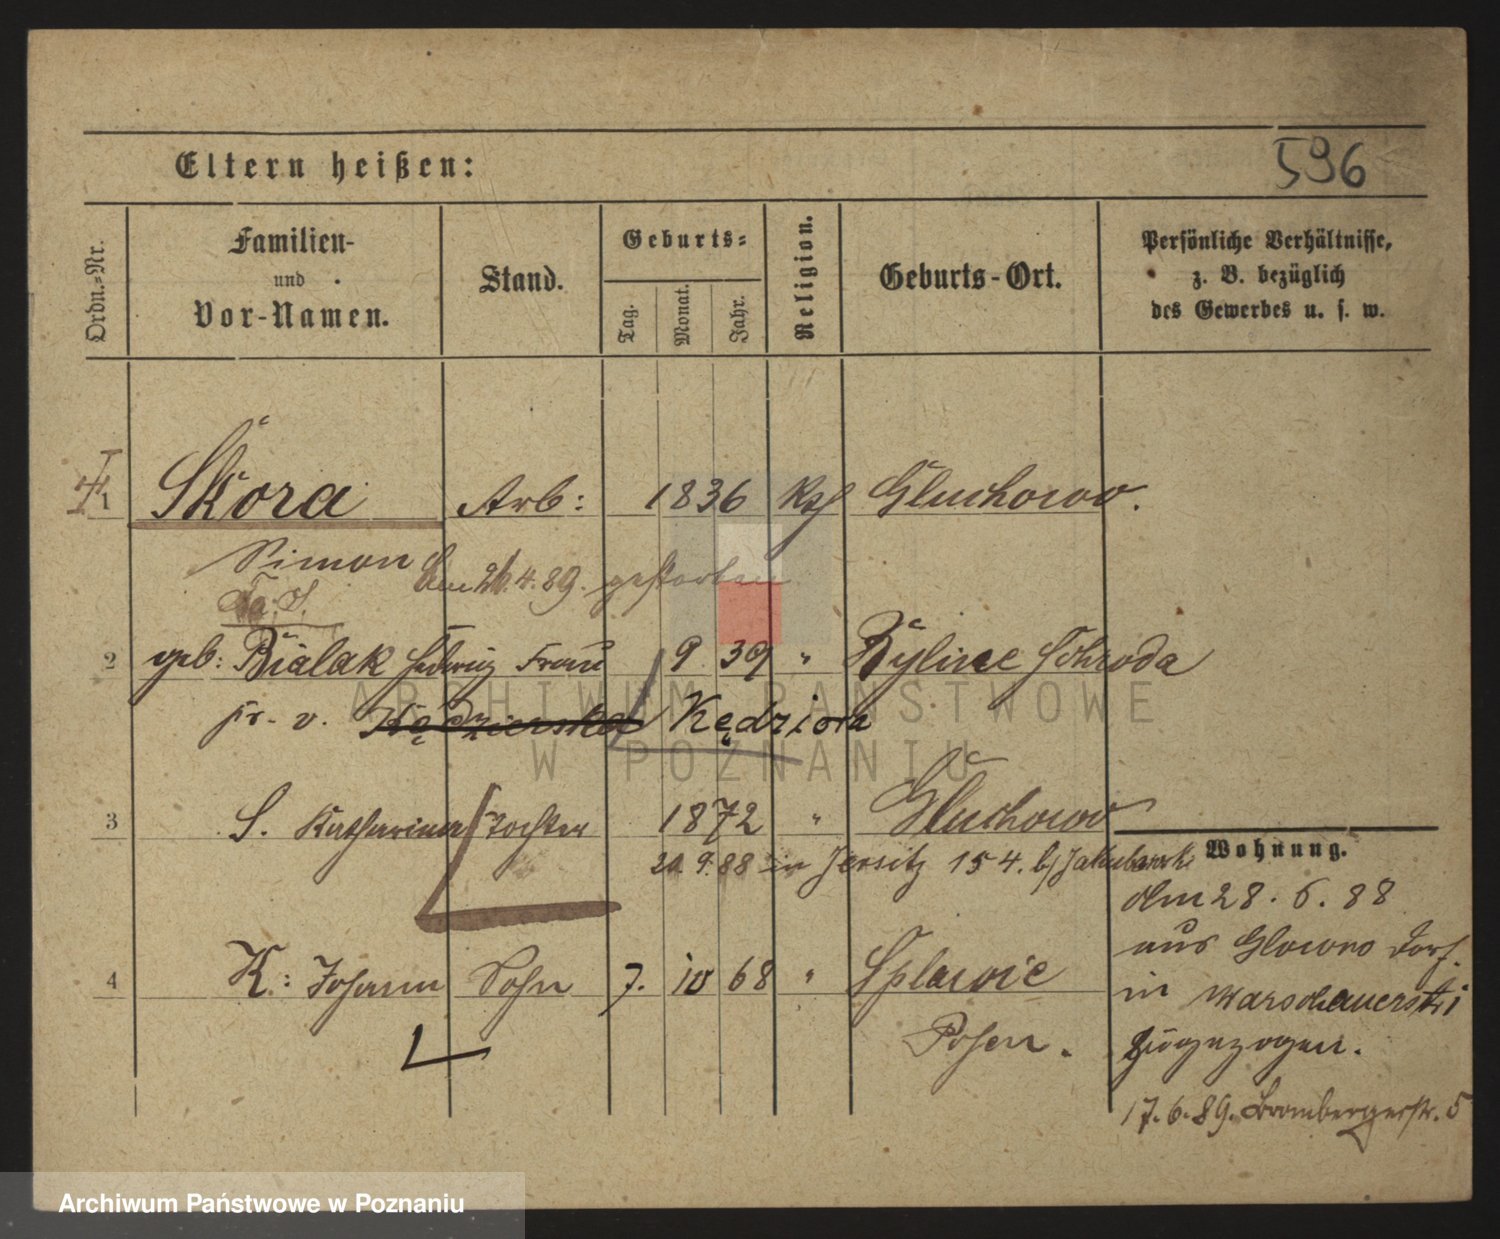 596
Eltern heißen:
Ordn.-Nr.
Familien-
und
Vor-Namen.
Stand.
Geburts-
Tag.
Monat.
Jahr.
Religion.
Geburts-Ort.
Persönliche Verhältnisse,
z. B. bezüglich
des Gewerbes u. s. w.
1 Skora Arb: 1836 Kath Gluchowo.
Simon Am 26.4.89. gestorben
2 geb: Bialak Hedwig Frau 9 39 " Bylin Schroda
fr. v. Kędzierska Kędziora
ARCHIWUM PAŃSTWOWE
W POZNANIU
3 S. Katharina Tochter 1872 " Gluchowo
20 9. 88 in Jersitz 154. b/ Jakubowski
4 K: Johann Sohn 7. 10 68 " Splawie
Posen.
Wohnung.
Am 28. 6. 88
aus Glowno Dorf.
in Warschauerstr
zugezogen.
17.6.89. Brombergerstr. 5
Archiwum Państwowe w Poznaniu